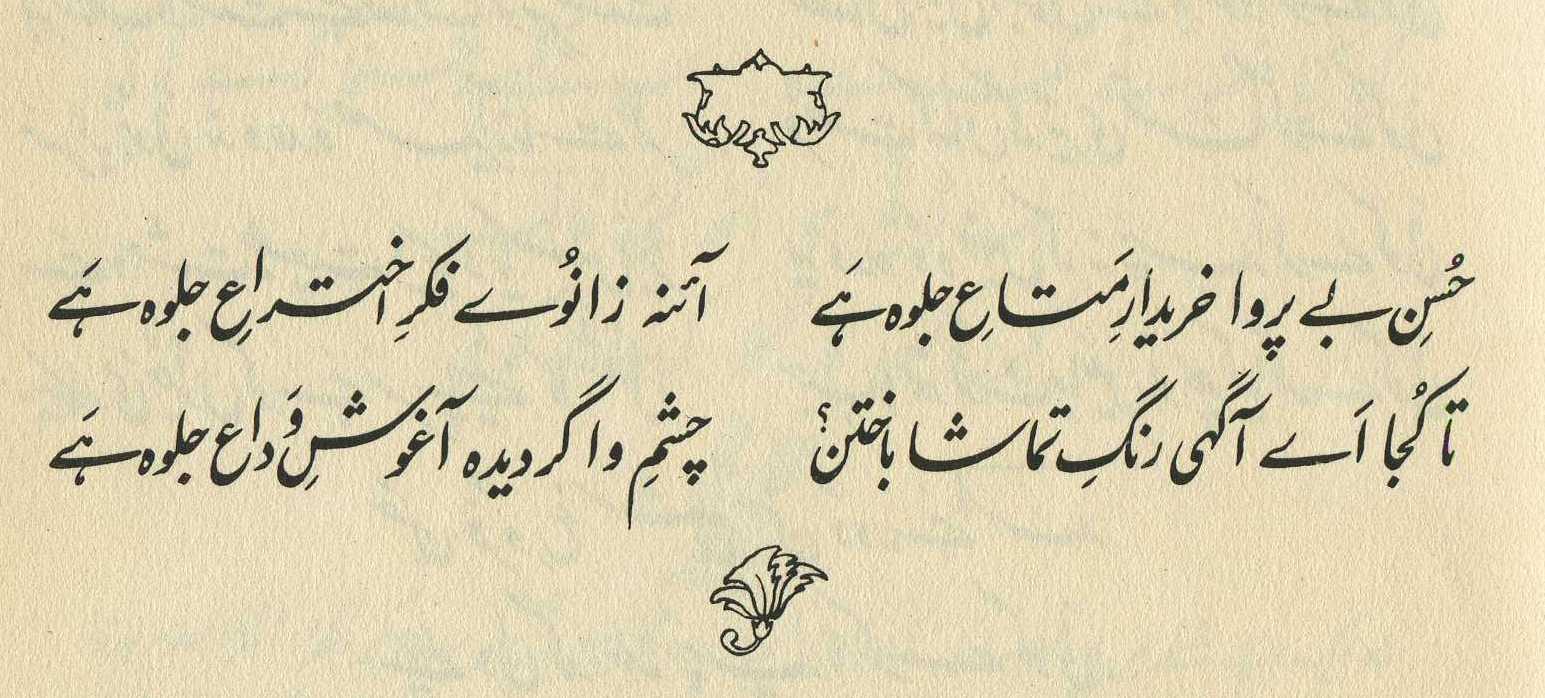 حُسنِ بے پروا خریدارِ مَتاعِ جلوہ ہَے آئنہ زانُوے فکرِ اختراعِ جلوہ ہَے
تا کُجا اَے آگہی رنگِ تماشا باختن؟ چشمِ وا گردیدہ آغوشِ وَداعِ جلوہ ہَے